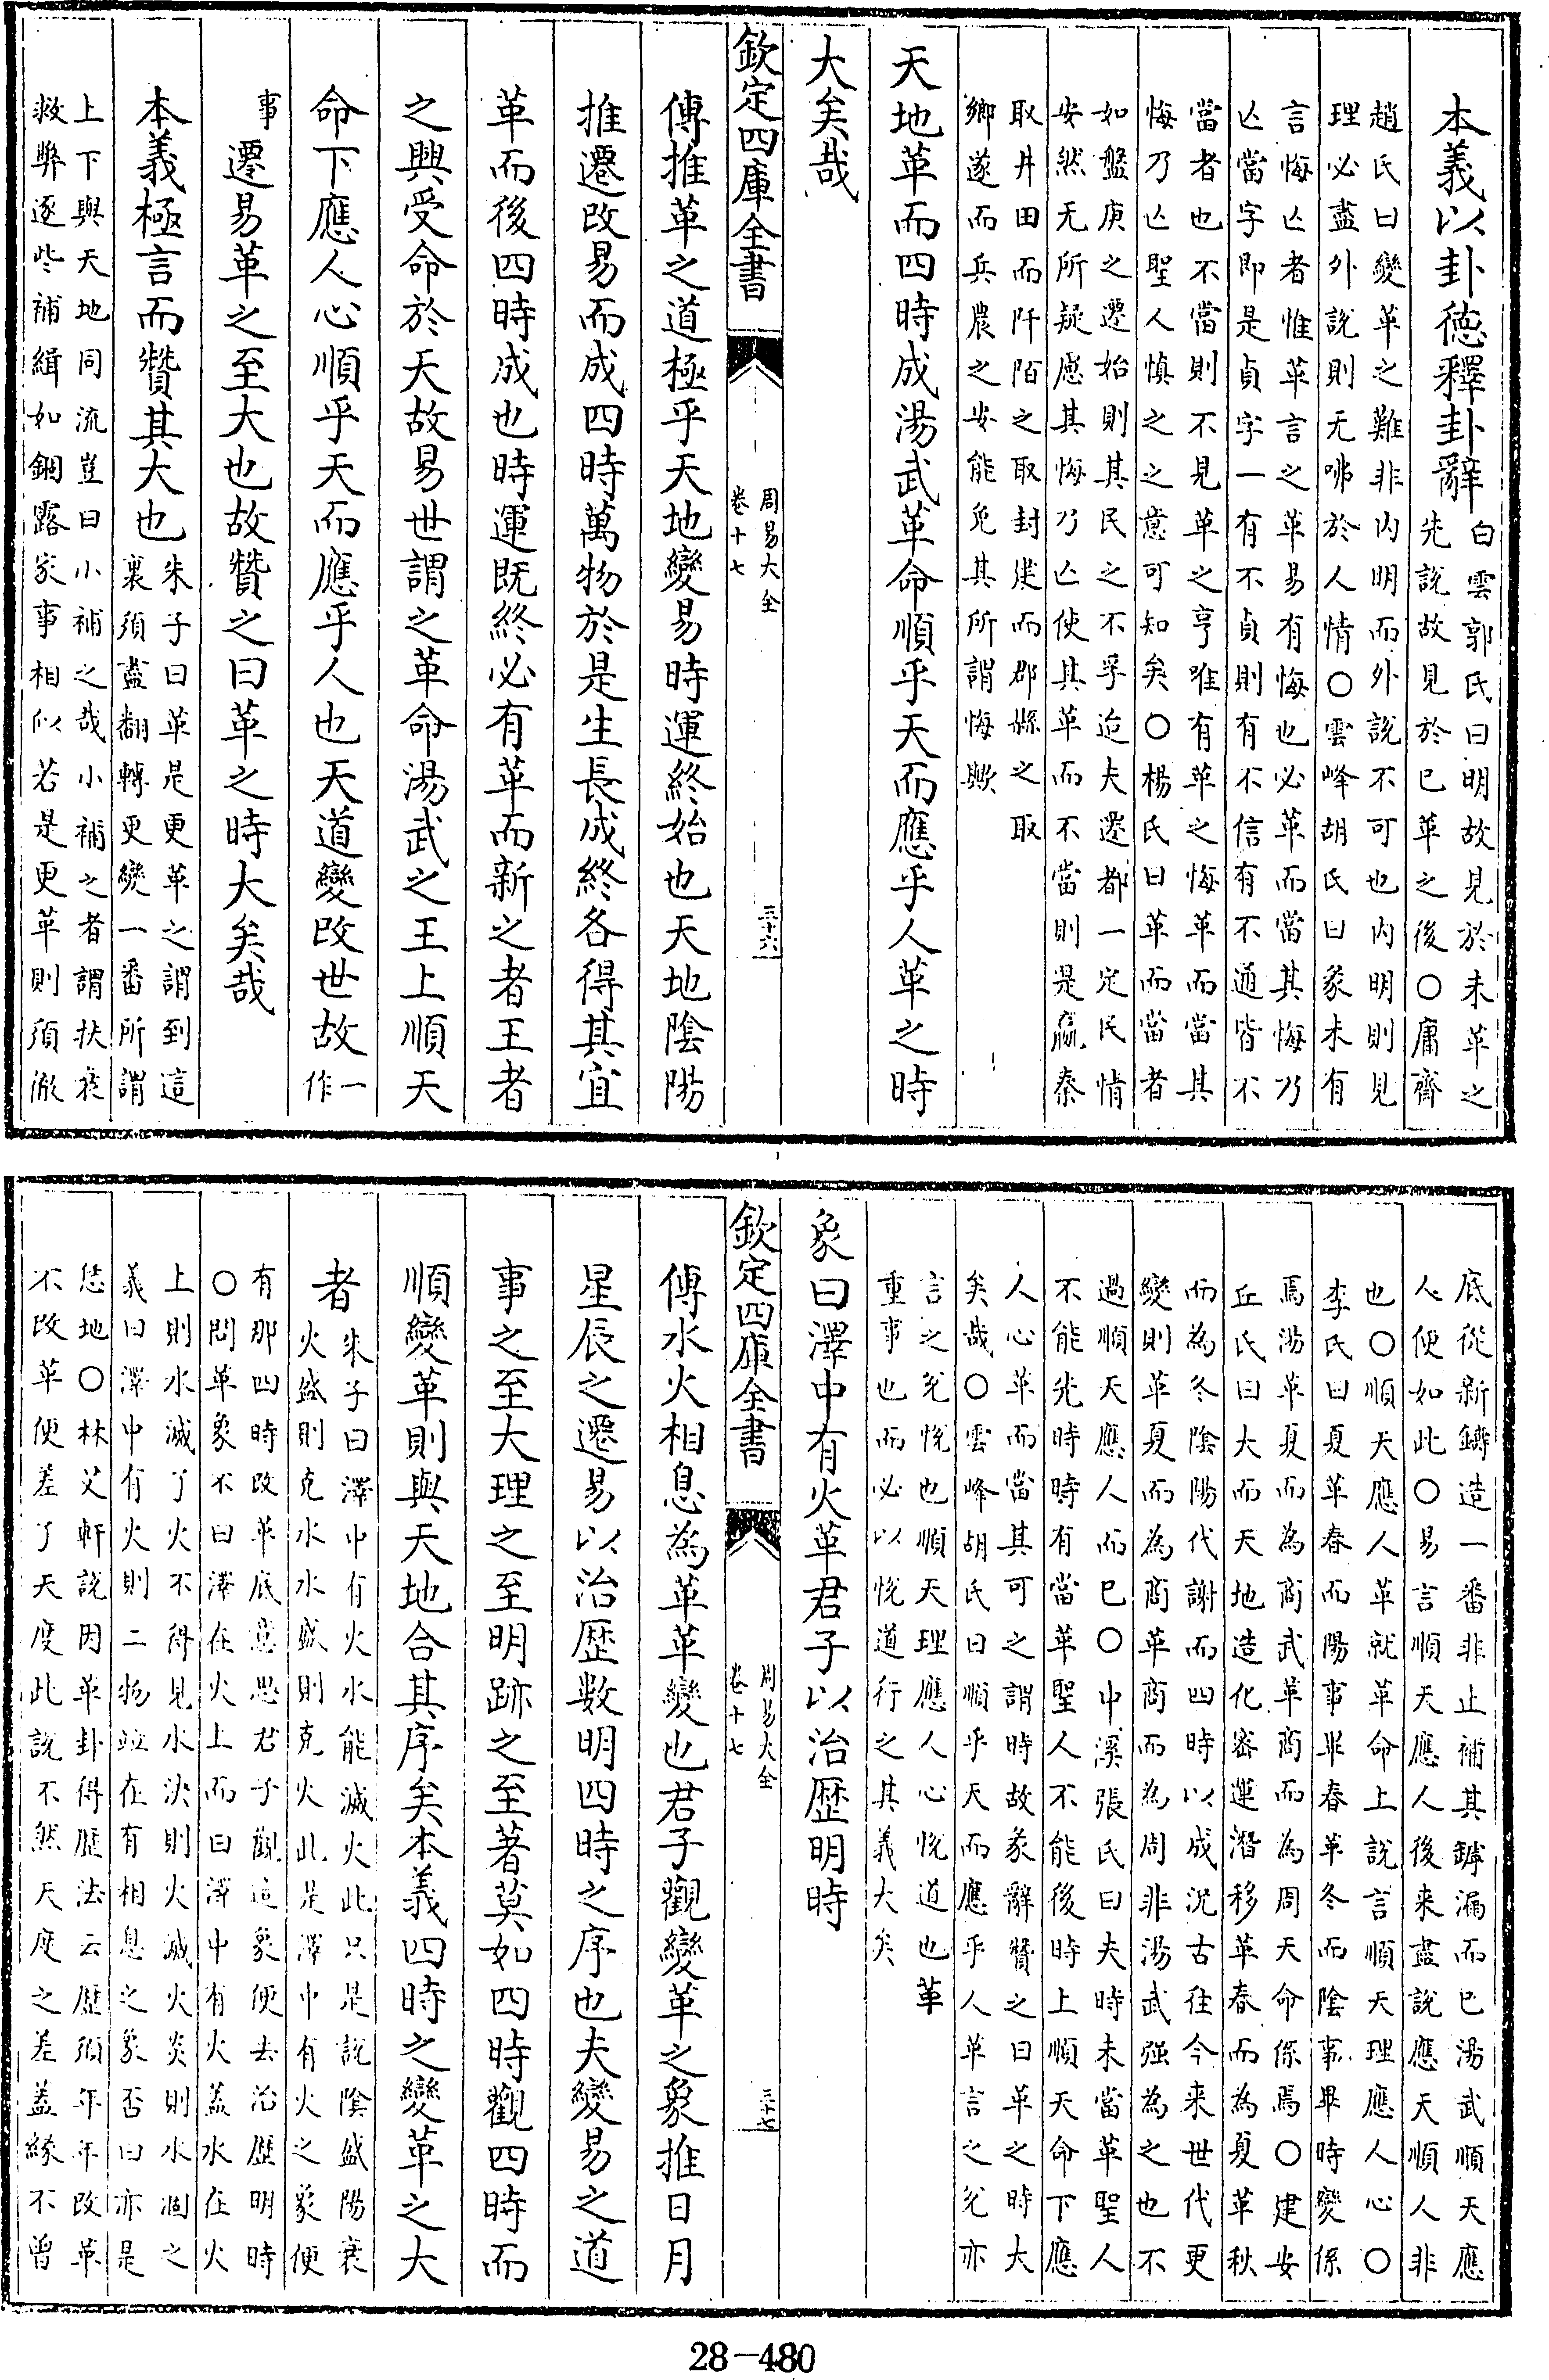 本義以卦徳釋卦辭
白雲郭氏曰明故見於未革之
先說故見於已革之後○庸齊
趙氏曰變革之難非内明而外說不可也内明則見
理必盡外說則无咈於人情○雲峰胡氏曰彖未有
言悔亡者惟革言之革易有悔也必革而當其悔乃
亡當字即是貞字一有不貞則有不信有不通皆不
當者也不當則不見革之亨唯有革之悔革而當其
悔乃亡聖人慎之之意可知矣○楊氏曰革而當者
如盤庚之遷始則其民之不孚迨夫遷都一定民情
安然无所疑慮其悔乃亡使其革而不當則是嬴秦
取井田而阡陌之取封建而郡縣之取
鄉遂而兵農之安能免其所謂悔歟
天地革而四時成湯武革命順乎天而應乎人革之時
大矣哉
欽定四庫全書
周易大全
卷十七
三十六
傳推革之道極乎天地變易時運終始也天地陰陽
推遷改易而成四時萬物於是生長成終各得其宜
革而後四時成也時運既終必有革而新之者王者
之興受命於天故易世謂之革命湯武之王上順天
命下應人心順乎天而應乎人也天道變改世故
一
作
事
遷易革之至大也故贊之曰革之時大矣哉
本義極言而贊其大也
朱子曰革是更革之謂到這
裏須盡翻轉更變一番所謂
上下與天地同流豈曰小補之哉小補之者謂扶衰
救弊逐些補緝如錮露家事相似若是更革則須徹
底從新鑄造一番非止補其罅漏而已湯武順天應
人便如此○易言順天應人後来盡說應天順人非
也○順天應人革就革命上說言順天理應人心○
李氏曰夏革春而陽事畢春革冬而陰事畢時變係
焉湯革夏而為商武革商而為周天命係焉○建安
丘氏曰大而天地造化宻運潛移革春而為夏革秋
而為冬陰陽代謝而四時以成況古往今来世代更
變則革夏而為商革商而為周非湯武强為之也不
過順天應人而已○中溪張氏曰夫時未當革聖人
不能先時時有當革聖人不能後時上順天命下應
人心革而當其可之謂時故彖辭贊之曰革之時大
矣哉○雲峰胡氏曰順乎天而應乎人革言之兌亦
言之兌悅也順天理應人心悅道也革
重事也而必以悅道行之其義大矣
象曰澤中有火革君子以治歴明時
欽定四庫全書
周易大全
卷十七
三十七
傳水火相息為革革變也君子觀變革之象推日月
星辰之遷易以治歴數明四時之序也夫變易之道
事之至大理之至明跡之至著莫如四時觀四時而
順變革則與天地合其序矣本義四時之變革之大
者
朱子曰澤中有火水能滅火此只是說陰盛陽衰
火盛則克水水盛則克火此是澤中有火之象便
有那四時改革底意思君子觀這象便去治歴明時
○問革象不曰澤在火上而曰澤中有火蓋水在火
上則水滅了火不得見水決則火滅火炎則水涸之
義曰澤中有火則二物竝在有相息之象否曰亦是
恁地○林艾軒說因革卦得歴法云歴須年年改革
不改革便差了天度此說不然天度之差蓋緣不曾
28-480